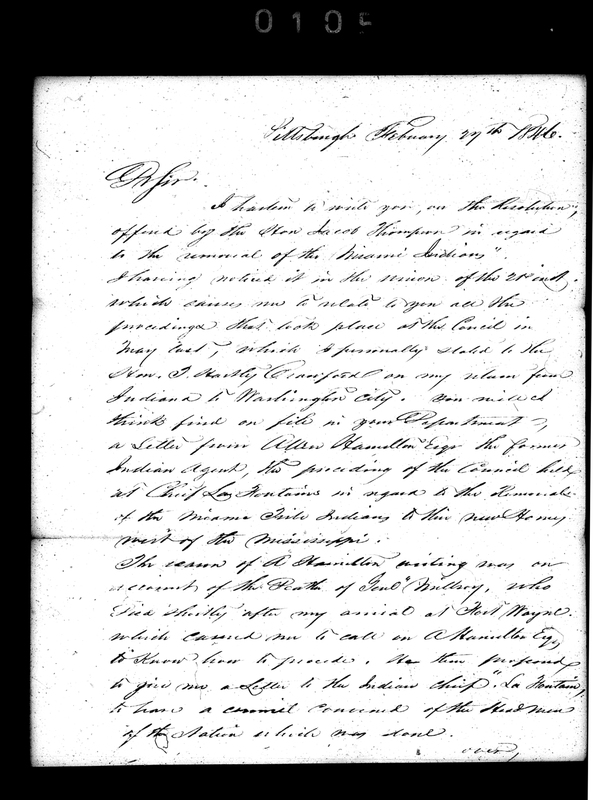 0105
Pittsburgh February 27th 1846.
Dr Sir.
I hasten to write you, on the Resolution",
offered by the Hon Jacob Thompson in regard
to the removal of the "Miami Indians".
I having noticed it in the union of the 21st inst.
which causes me to relate to you all the
procedings that took place at the Concil in
May last, which I personally stated to the
Hon. T. Hartly Crawford on my return from
Indiana to Washington City. You will I
think find on file in your Department,
a Letter from Allen Hamilton Esqr the former
Indian Agent, the proceding of the Council held
at Chief La Fontains in regard to the Removal
of the Miami Tribe Indians to their new Homes
west of the Mississippi.
The reason of A Hamilton writing was on
account of the Death of Genl Milroy, who
Died shortly after my arrival at Fort Wayne
which caused me to call on A Hamilton Esqr
to Know how to procede. He then proposed
to give me a Letter to the Indian chief "La Fontain,
to have a council convened of the Head men
of the Nation which was done.
over,